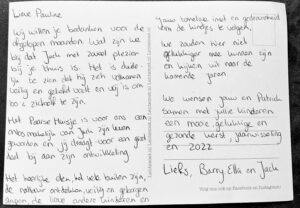 Lieve Pauline
Wij willen je bedanken voor de
afgelopen maanden. Wat zijn we
blij dat Jack met zoveel plezier
bij je thuis is. Het is duide-
lijk te zien dat hij zich vertrouwd
veilig en geliefd voelt en vrij is om
zo zichzelf te zijn.
Het Paarse Huisje is voor ons een
onlosmakelijk van Jack zijn leven
geworden en jij draagt voor een groot
deel bij aan zijn ontwikkeling
Het heerlijke den het vele buiten zijn,
de natuur ontdekken, veilig en geborgen
de lieve andere kinderen en
jouw tomeloze inzet en gedrevenheid
om de kindjes te volgen,
We zouden hier niet
gelukkiger mee kunnen zijn
en kijken uit naar de
komende jaren.
We wensen jouw en Patrick
samen met jullie kinderen
een mooie, gelukkige en
gezonde kerst, jaarwisseling
en 2022
Liefs, Barry Ella en Jack
Volg ons ook op Facebook en Instagram!